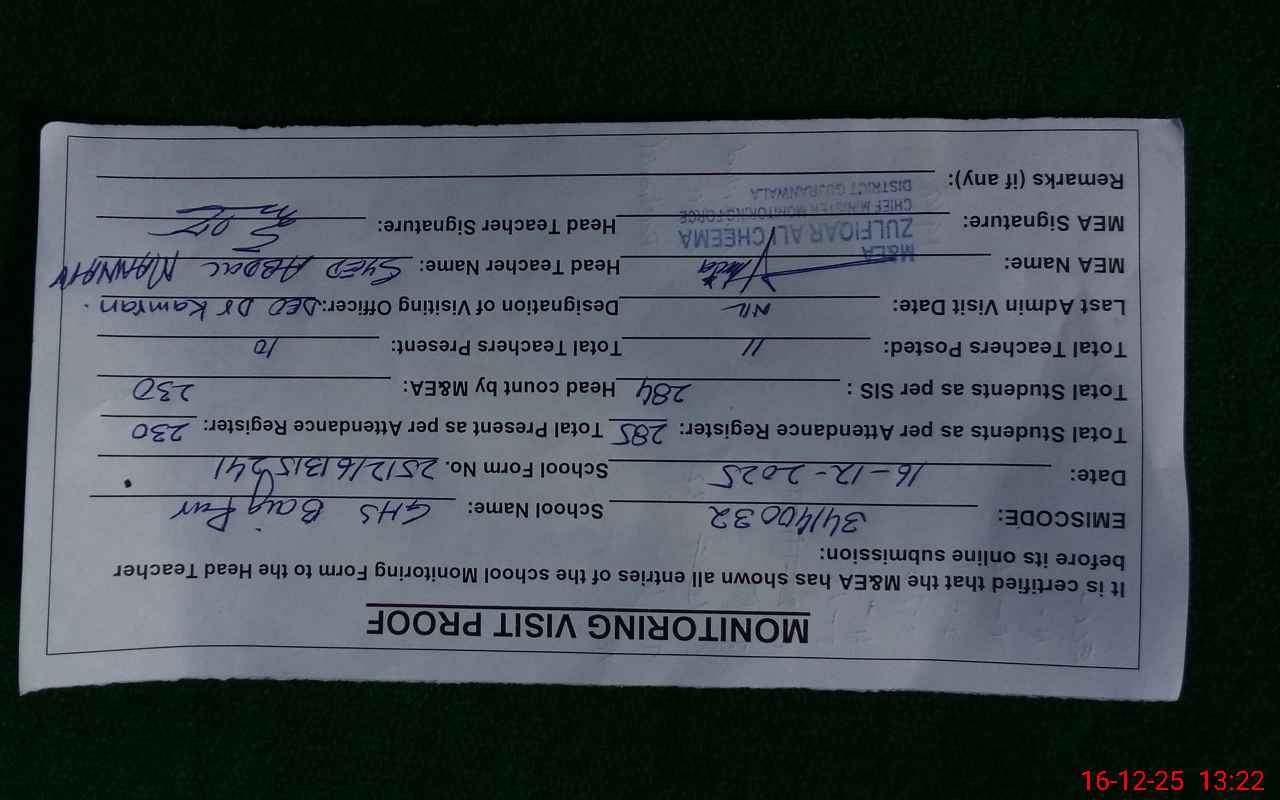 MONITORING VISIT PROOF
It is certified that the M&EA has shown all entries of the school Monitoring Form to the Head Teacher
before its online submission:
EMISCODE: 34140032 School Name: GHS Baig Pur
Date: 16-12-2025 School Form No. 251216131541
Total Students as per Attendance Register: 285 Total Present as per Attendance Register: 230
Total Students as per SIS : 284 Head count by M&EA: 230
Total Teachers Posted: 11 Total Teachers Present: 10
Last Admin Visit Date: NIL Designation of Visiting Officer: DEO Dr Kamran.
MEA Name: Head Teacher Name: SYED ABDUL MANNAN
M&EA
ZULFIQAR ALI CHEEMA
MEA Signature: Head Teacher Signature:
CHIEF MINISTER MONITORING FORCE
DISTRICT GUJRANWALA
Remarks (if any):
16-12-25 13:22